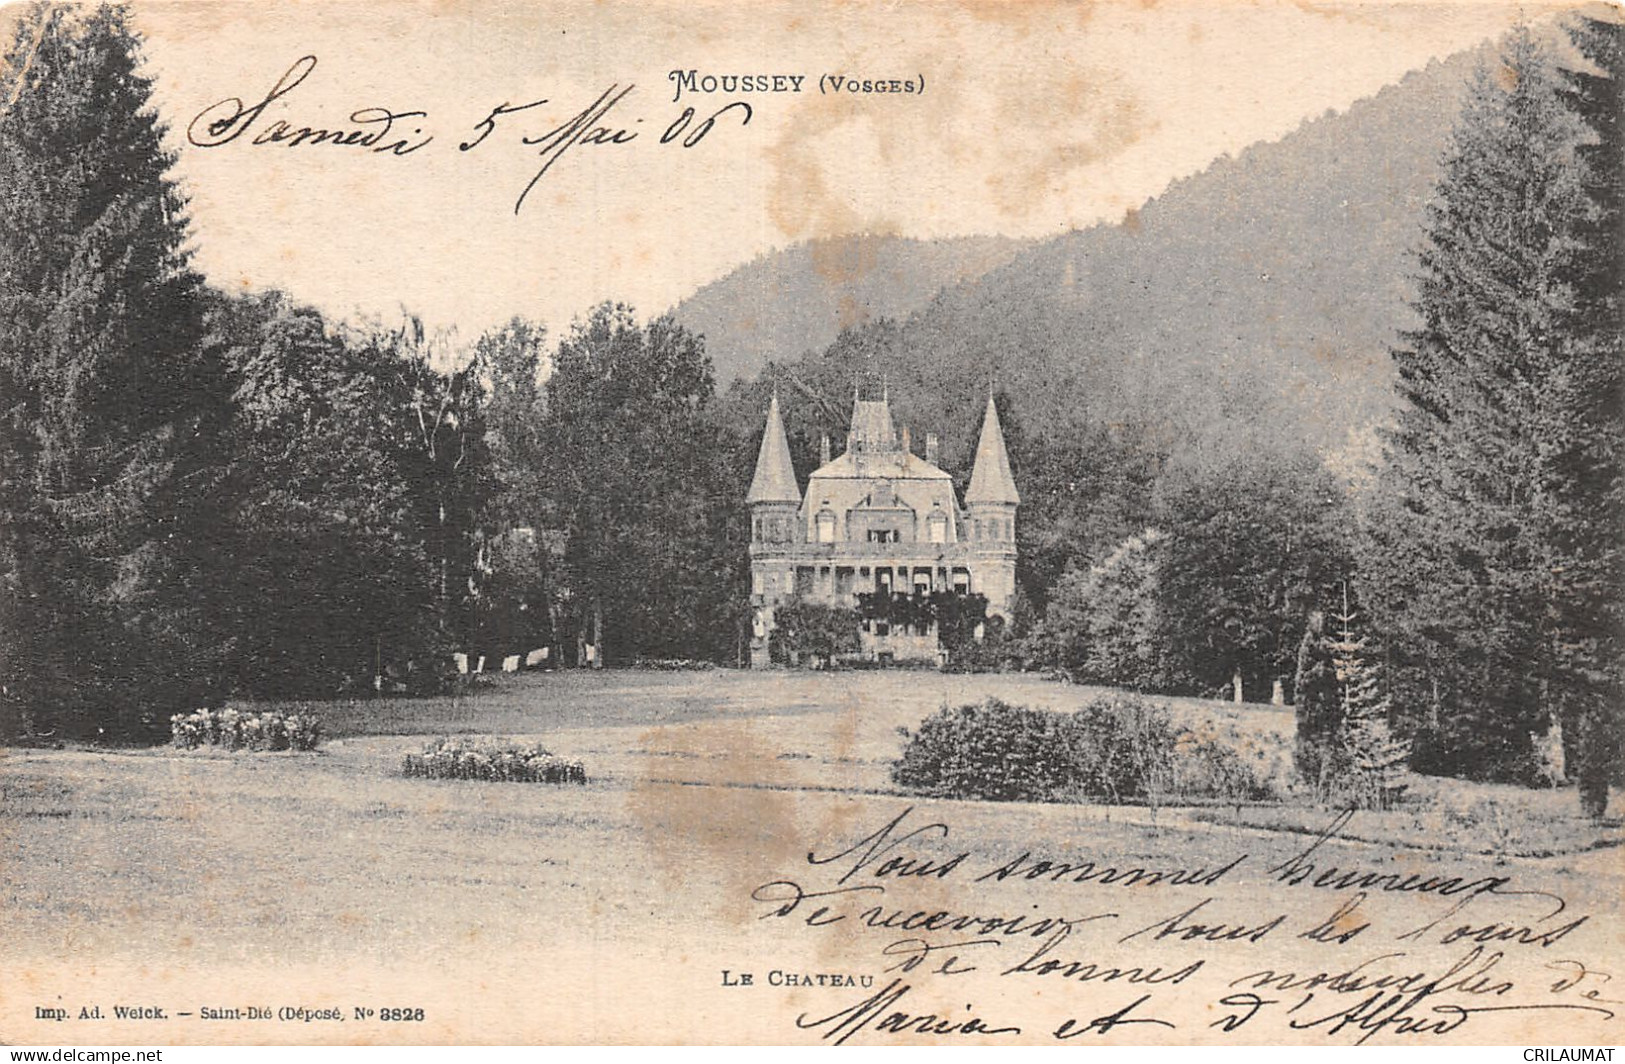 MOUSSEY (VOSGES)
Samedi 5 Mai 06
Nous sommes heureux
de recevoir tous les jours
de bonnes nouvelles de
Maria et d'Alfred
LE CHATEAU
Imp. Ad. Weick. — Saint-Dié (Déposé, No 3828
www.delcampe.net
CRILAUMAT